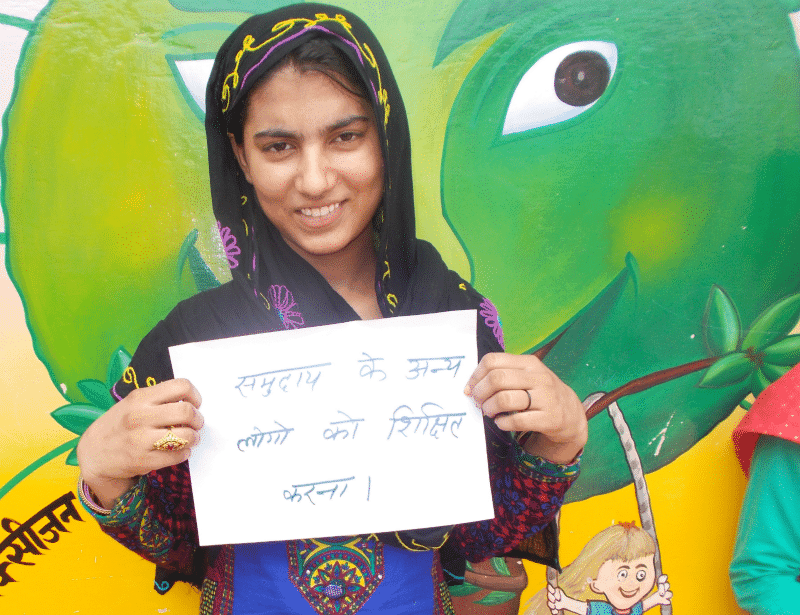 समुदाय के अन्य
लोगो को शिक्षित
करना।
क्सीजन